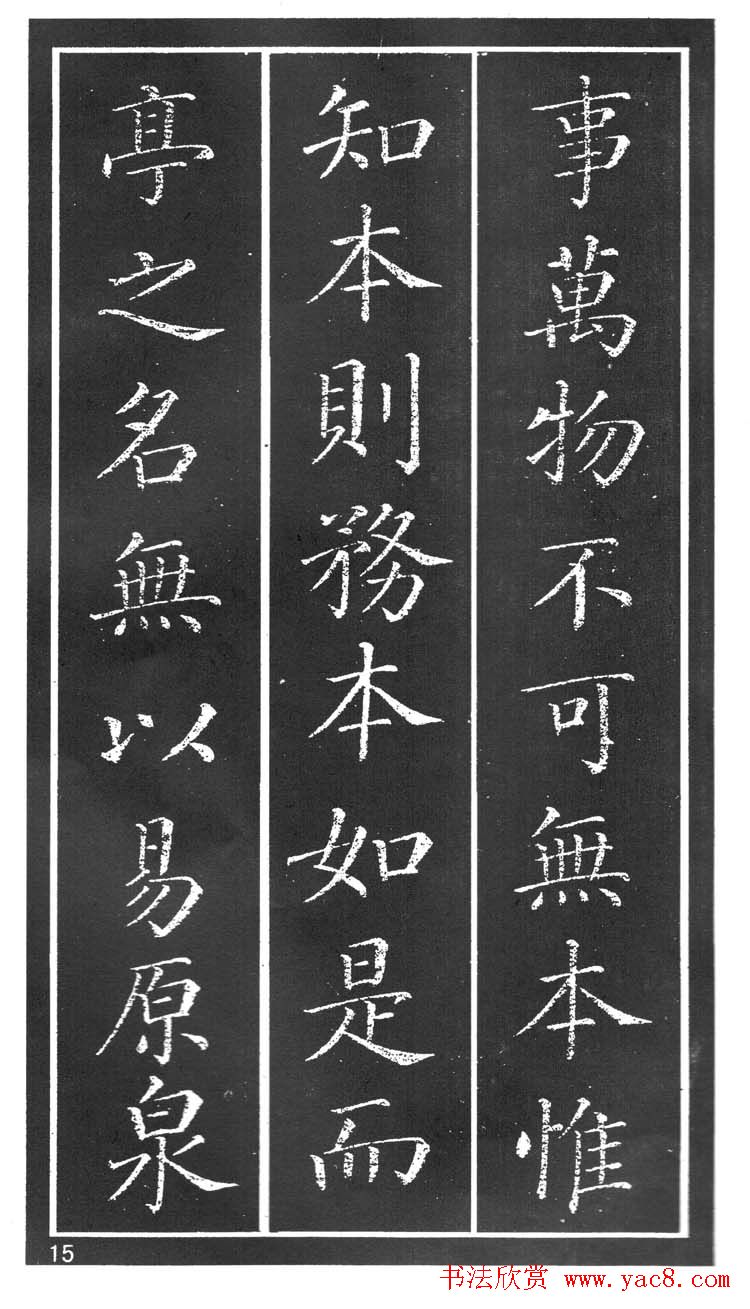 事萬物不可無本惟
知本則務本如是而
亭之名無以易原泉
15
书法欣赏 www.yac8.com